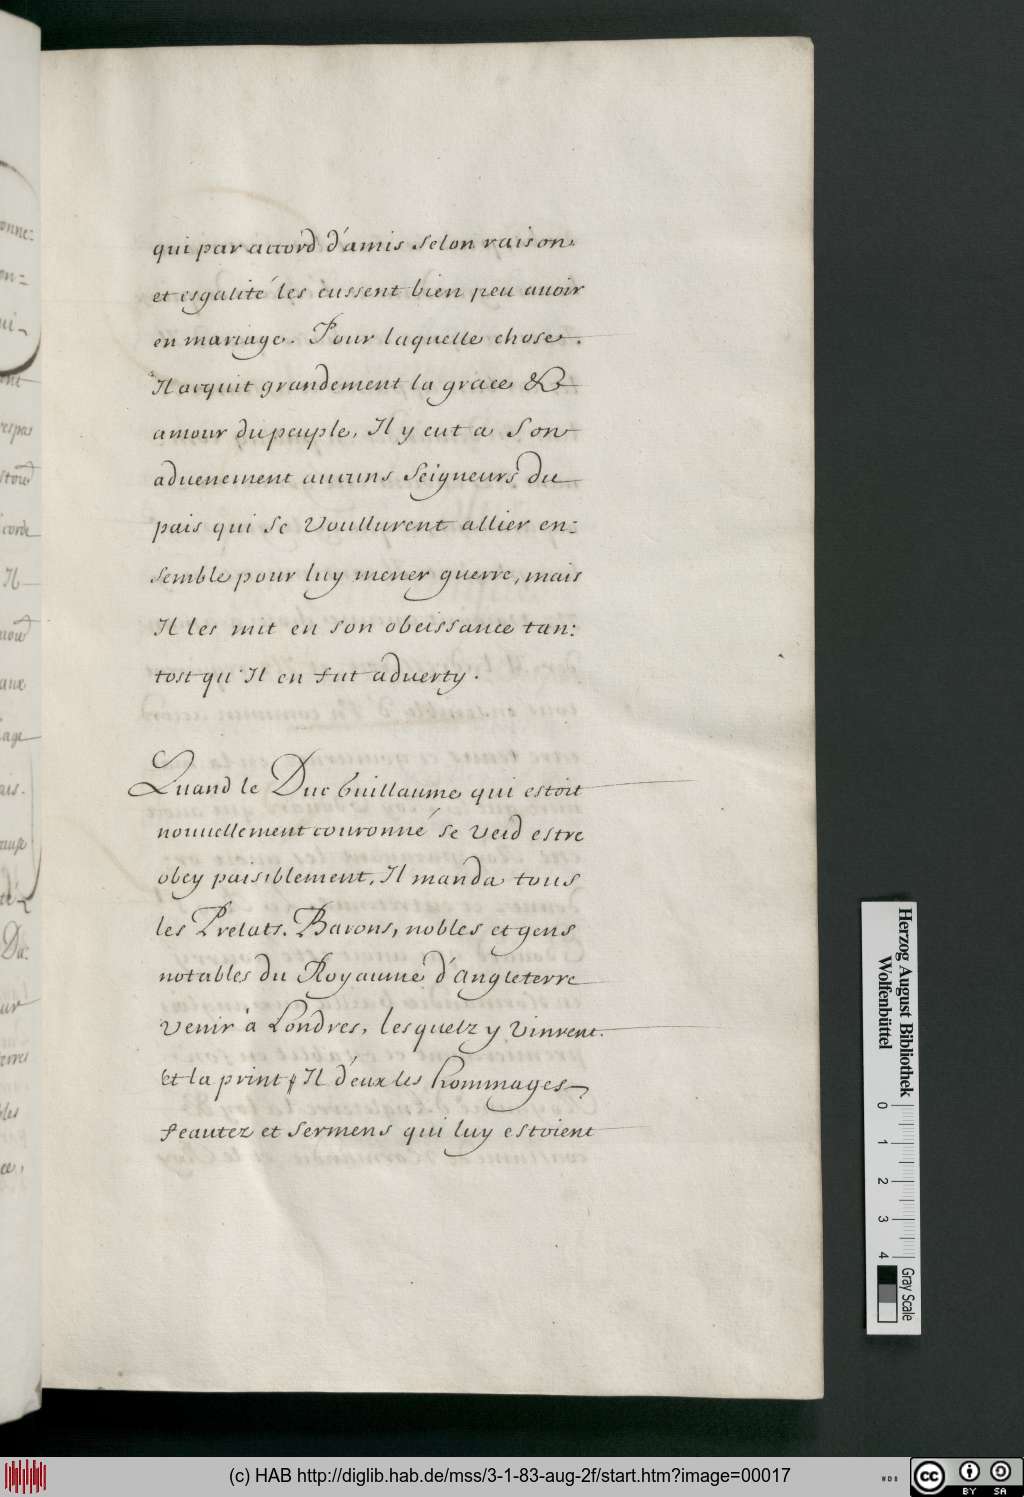 qui par accord d'amis selon raison
et esgalité les eussent bien peu auoir
en mariage. Pour laquelle chose.
Il acquit grandement la grace &
amour du peuple, Il y eut a son
aduenement aucuns Seigneurs du
pais qui se voullurent allier en:
semble pour luy mener guerre, mais
Il les mit en son obeissance tan:
tost qu'Il en fut aduerty.
Quand le Duc Guillaume qui estoit
nouuellement couronné se veid estre
obey paisiblement, Il manda tous
les Prelats. Barons, nobles et gens
notables du Royaume d'Angleterre
venir à Londres, lesquelz y vinrent.
Et la print Il d'eux les hommages
feautez et sermens qui luy estoient
Herzog August Bibliothek
Wolfenbüttel
0 1 2 3 4
Gray Scale
(c) HAB http://diglib.hab.de/mss/3-1-83-aug-2f/start.htm?image=00017
WDB
cc BY SA